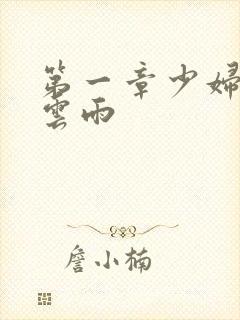 第一章少婦
雲雨
詹小楠